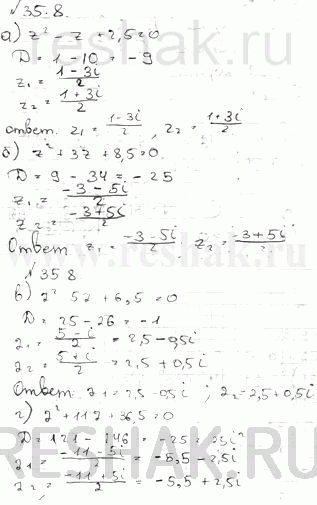 № 35.8
а) z² - z + 2,5 = 0
D = 1 - 10 - 9
z₁ = (1 - 3i)/2
z₂ = (1 + 3i)/2
ответ. z₁ = (1-3i)/2 , z₂ = (1+3i)/2
б) z² + 3z + 8,5 = 0.
D = 9 - 34 = - 25
z₁ = (-3 - 5i)/2
z₂ = (-3+5i)/2
Ответ z₁ = (-3-5i)/2 z₂ = (-3+5i)/2
www.reshak.ru
№ 35 8
в) z² 5z + 6,5 = 0
D = 25 - 26 = -1
z₁ = (5 - i)/2 = 2,5 - 0,5i
z₂ = (5 + i)/2 = 2,5 + 0,5i
Ответ. z₁ = 2,5 - 0,5i ; z₂ = 2,5 + 0,5i
г) z² + 11z + 36,5 = 0
RESHAK.RU
D = 121 - 146 = -25 = 25i²
z₁ = (-11 - 5i)/2 = -5,5 - 2,5i
z₂ = (-11 + 5i)/2 = -5,5 + 2,5i